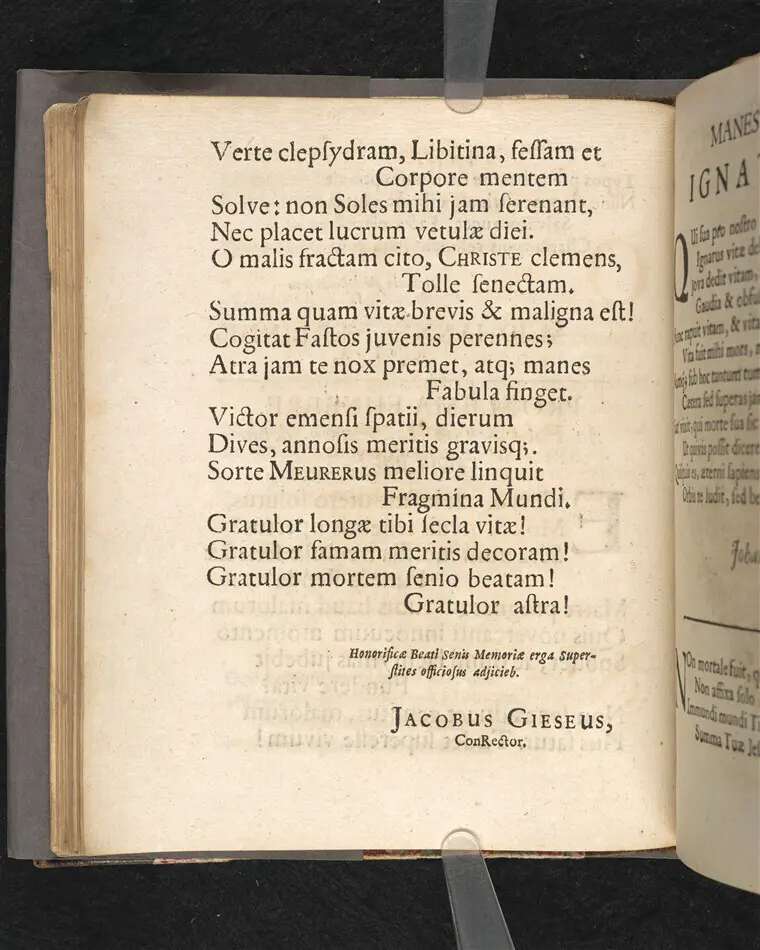 Verte clepſydram, Libitina, feſſam et
Corpore mentem
Solve: non Soles mihi jam ſerenant,
Nec placet lucrum vetulæ diei.
O malis fractam cito, CHRISTE clemens,
Tolle ſenectam.
Summa quam vitæ brevis & maligna eſt!
Cogitat Faſtos juvenis perennes;
Atra jam te nox premet, atq; manes
Fabula finget.
Victor emenſi ſpatii, dierum
Dives, annoſis meritis graviſq;.
Sorte MEURERUS meliore linquit
Fragmina Mundi.
Gratulor longæ tibi ſecla vitæ!
Gratulor famam meritis decoram!
Gratulor mortem ſenio beatam!
Gratulor aſtra!
Honorificæ Beati Senis Memoriæ erga Super-
ſtites officioſus adjicieb.
JACOBUS GIESEUS,
ConRector.
MANES
IGNA
Qui ſua pro noſtro
Ignarus vitæ
Jova dedit vitam,
Gaudia &
rapuit vitam, & vita
Vita fuit mihi mors,
ſub hoc tantum
Cætera ſed ſuperas
qui morte ſua ſic
Ut quivis poſſit dicere
es, æterni
Orbis te ludit, ſed
Non mortale fuit,
Non affixa ſolo
Immundi mundi
Summa Tuæ